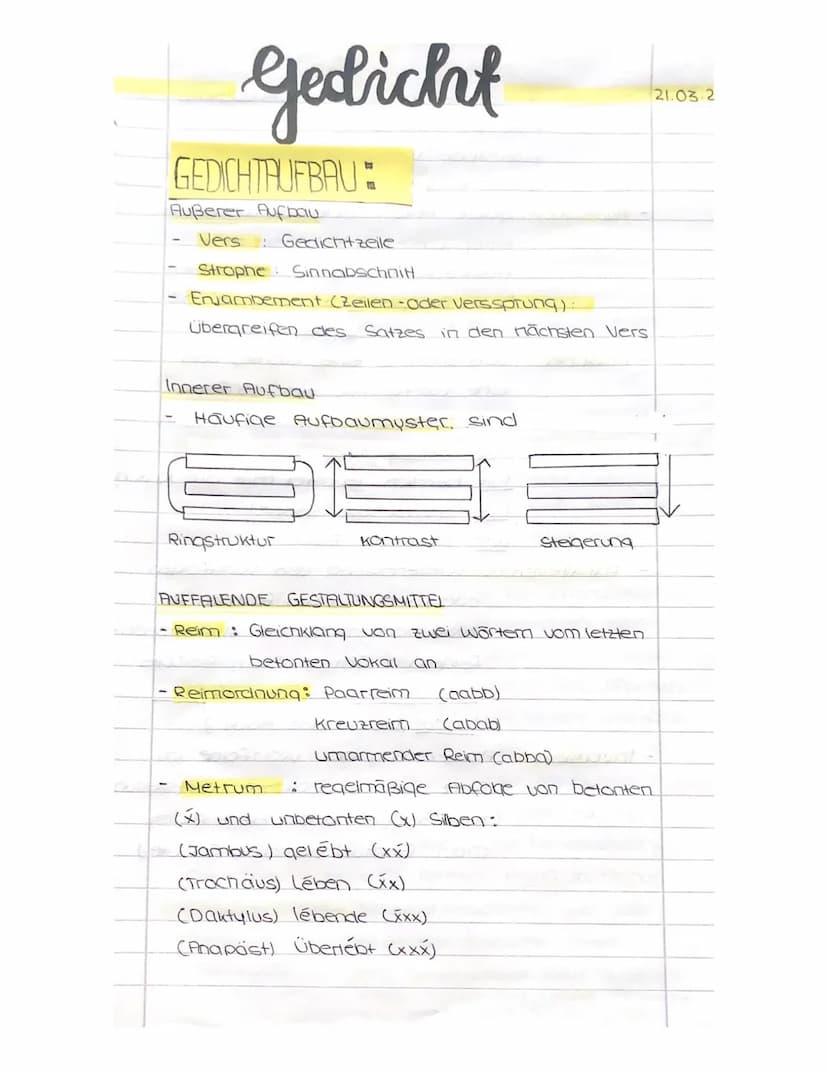 Gedicht
21.03.2
GEDICHTAUFBAU:
Äußerer Aufbau
- Vers : Gedichtzeile
- Strophe : Sinnabschnitt
- Enjambement (Zeilen-oder Verssprung):
Übergreifen des Satzes in den nächsten Vers
Innerer Aufbau
- Häufige Aufbaumuster sind
Ringstruktur Kontrast Steigerung
AUFFALENDE GESTALTUNGSMITTEL
- Reim : Gleichklang von zwei Wörtern vom letzten
betonten Vokal an
- Reimordnung: Paarreim (aabb)
Kreuzreim (abab)
umarmender Reim (abba)
- Metrum : regelmäßige Abfolge von betonten
(x́) und unbetonten (x) Silben:
(Jambus) gelébt (xx́)
(Trochäus) Lében (x́x)
(Daktylus) lébende (x́xx)
(Anapäst) Überlébt (xxx́)